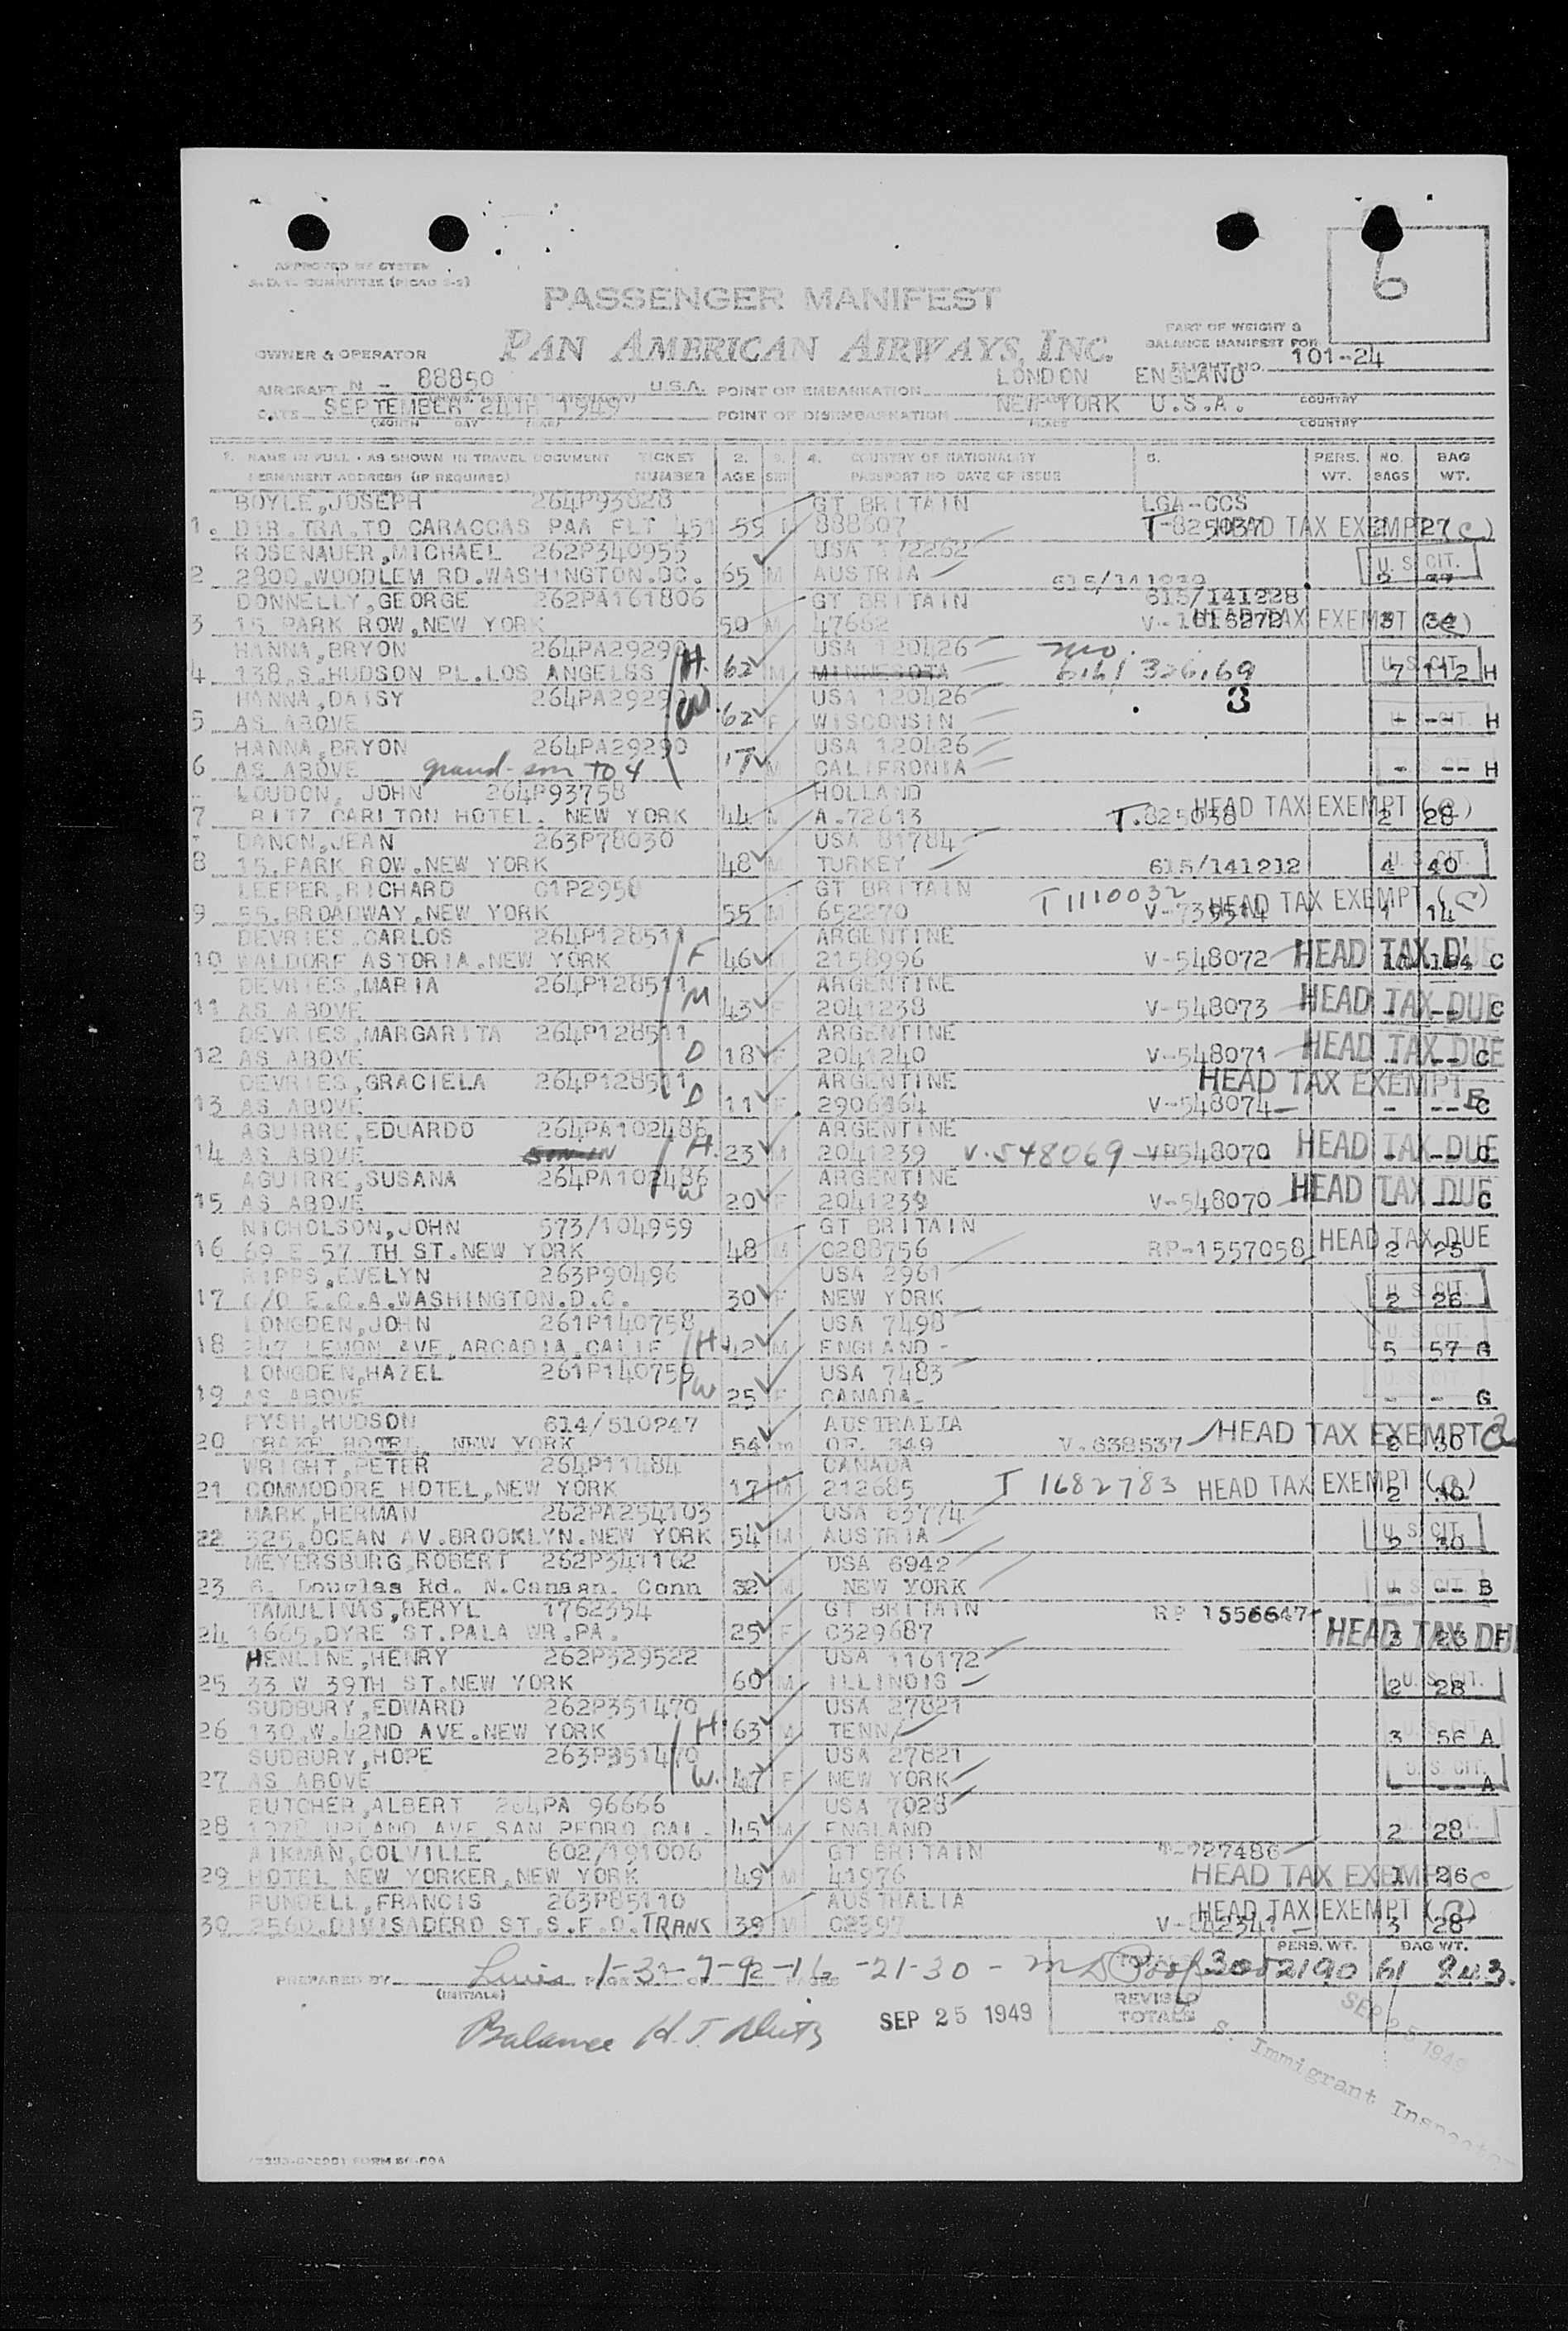 6
PASSENGER MANIFEST
PAN AMERICAN AIRWAYS, INC.
PART OF WEIGHT &
BALANCE MANIFEST FOR
FLIGHT NO. 101-24
OWNER & OPERATOR
AIRCRAFT N - 88850 U.S.A. POINT OF EMBARKATION LONDON ENGLAND COUNTRY
DATE SEPTEMBER 24TH 1949 POINT OF DISEMBARKATION NEW YORK U.S.A.
(MONTH DAY YEAR) PLACE COUNTRY
1. NAME IN FULL - AS SHOWN IN TRAVEL DOCUMENT TICKET 2. 3. 4. COUNTRY OF NATIONALITY 5. PERS. NO. BAG
PERMANENT ADDRESS (IF REQUIRED) NUMBER AGE SEX PASSPORT NO DATE OF ISSUE WT. BAGS WT.
BOYLE,JOSEPH 264P93828 GT BRITAIN LGA-CCS
1. DIR.TRA.TO CARACCAS PAA FLT 451 55 888607 T-825037 HEAD TAX EXEMPT 2 27 (C)
ROSENAUER,MICHAEL 262P340955 USA 172262
2 2800.WOODLEM RD.WASHINGTON.DC. 65 M AUSTRIA U.S. CIT.
DONNELLY,GEORGE 262PA161806 GT BRITAIN 615/141228
3 15 PARK ROW.NEW YORK 50 M 47662 HEAD TAX EXEMPT 3 34 (C)
HANNA,BRYON 264PA29290 USA 120426 mo.
4 138.S.HUDSON PL.LOS ANGELSS H. 62 M MINNESOTA U.S. CIT. 7 112 H
HANNA,DAISY 264PA29290 USA 120426 3
5 AS ABOVE W. 62 F WISCONSIN U.S. CIT. - -- H
HANNA,BRYON 264PA29290 USA 120426
6 AS ABOVE grand-son to 4 17 M CALIFRONIA - -- H
LOUDON, JOHN 264P93758 HOLLAND
7 RITZ CARLTON HOTEL. NEW YORK 44 M A.72613 T.825038 HEAD TAX EXEMPT 2 28 (C)
DANON,JEAN 263P78030 USA 81784
8 15.PARK ROW.NEW YORK 48 M TURKEY 615/141212 U.S. CIT. 4 40
LEEPER,RICHARD 01P2950 GT BRITAIN T1110032
9 55.BROADWAY.NEW YORK 55 M 652270 HEAD TAX EXEMPT 1 14 (C)
DEVRIES,CARLOS 264P128511 ARGENTINE
10 WALDORF ASTORIA.NEW YORK F 46 M 2158996 V-548072 HEAD TAX DUE C
DEVRIES,MARIA 264P128511 ARGENTINE
11 AS ABOVE M 43 F 2041238 V-548073 HEAD TAX DUE - -- C
DEVRIES,MARGARITA 264P128511 ARGENTINE
12 AS ABOVE D 18 F 2041240 V-548071 HEAD TAX DUE - -- C
DEVRIES,GRACIELA 264P128511 ARGENTINE HEAD TAX EXEMPT
13 AS ABOVE D 11 F V-548074 - -- C
AGUIRRE,EDUARDO 264PA102486 ARGENTINE
14 AS ABOVE SON-IN H. 23 M 2041239 V.548069 548070 HEAD TAX DUE - -- C
AGUIRRE,SUSANA 264PA102486 ARGENTINE
15 AS ABOVE W 20 F 2041239 V-548070 HEAD TAX DUE - -- C
NICHOLSON,JOHN 573/104959 GT BRITAIN
16 69 E 57 TH ST.NEW YORK 48 M C288756 RP-1557058 HEAD TAX DUE 2 25
RIPPS,EVELYN 263P90496 USA 2961
17 C/O E.C.A.WASHINGTON.D.C. 30 F NEW YORK U.S. CIT. 2 26
LONGDEN,JOHN 261P140758 USA 7498
18 247 LEMON AVE.ARCADIA.CALIF H 42 M ENGLAND U.S. CIT. 5 57 G
LONGDEN,HAZEL 261P140759 USA 7483
19 AS ABOVE W 25 F CANADA - - G
FYSH,HUDSON AUSTRALIA
20 DRAKE HOTEL, NEW YORK 54 M OF. 349 V.638537 HEAD TAX EXEMPT 2 30
WRIGHT,PETER 264P11484 CANADA
21 COMMODORE HOTEL,NEW YORK 17 M 212685 T 1682783 HEAD TAX EXEMPT 2 30
MARK,HERMAN 262PA254103 USA 63774
22 325.OCEAN AV.BROOKLYN.NEW YORK 54 M AUSTRIA U.S. CIT. 2 30
MEYERSBURG,ROBERT 262P341162 USA 6942
23 Douglas Rd. N.Canaan. Conn 32 M NEW YORK U.S. CIT. - -- B
TAMULINAS,BERYL 1762354 GT BRITAIN RP 1556647
24 1665,DYRE ST.PALA WR.PA. 25 F C329687 HEAD TAX DUE 3 26
HENLINE,HENRY 262P329522 USA 116172
25 33 W 39TH ST.NEW YORK 60 M ILLINOIS U.S. CIT. 2 28
SUDBURY,EDWARD 262P351470 USA 27821
26 130.W.42ND AVE.NEW YORK H. 63 M TENN U.S. CIT. 3 56 A
SUDBURY,HOPE 263P351470 USA 27821
27 AS ABOVE W. 47 F NEW YORK U.S. CIT. - -- A
BUTCHER,ALBERT 264PA 96666 USA 7028
28 UPLAND AVE SAN PEDRO CAL. 45 M ENGLAND 2 28
AIKMAN,COLVILLE 602/191006 GT BRITAIN T-727486
29 HOTEL NEW YORKER.NEW YORK 49 M 41976 HEAD TAX EXEMPT 1 26 C
RUNDELL,FRANCIS 263P85110 AUSTRALIA
30 2560.DIVISADERO ST.S.F.O.TRANS 39 M C2397 HEAD TAX EXEMPT 3 28
PERS. WT. BAG WT.
PREPARED BY 30 2190 61
(INITIALS)
REVISED
TOTALS
Balance H.T.
SEP 25 1949
SEP 25 1949
S. Immigrant Inspector